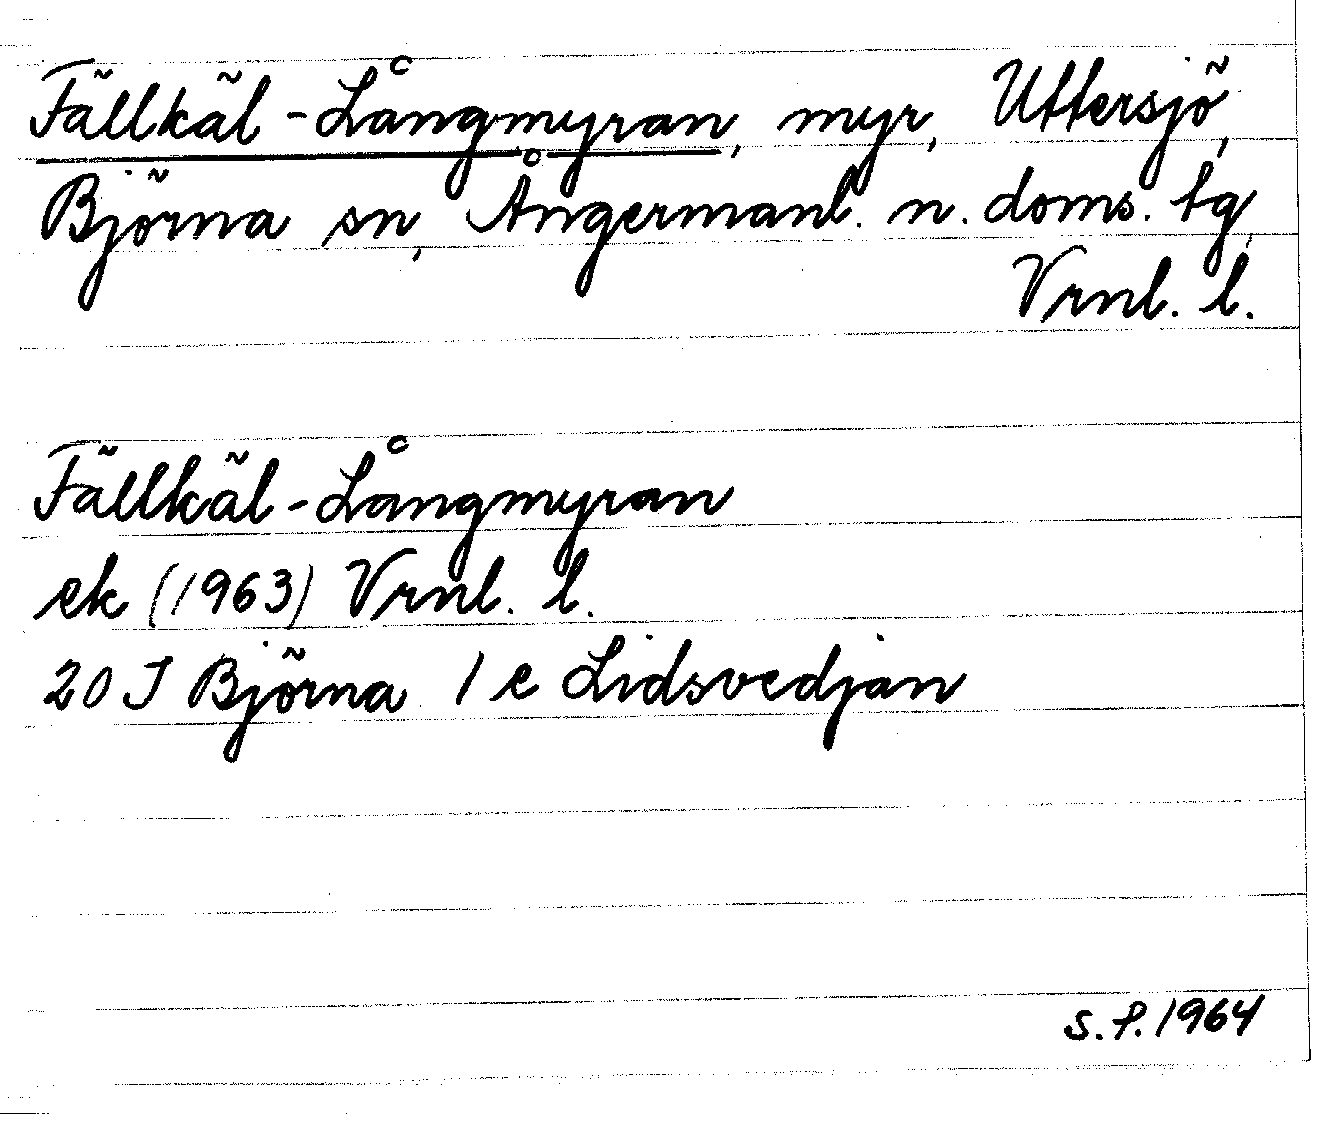 Fällkäl-Långmyran, myr, Uttersjö,
Björna sn, Ångermanl. n. doms. tg,
Vrnl. l.
Fällkäl-Långmyran
ek (1963) Vrnl. l.
20 I Björna 1 e Lidsvedjan
S.P. 1964